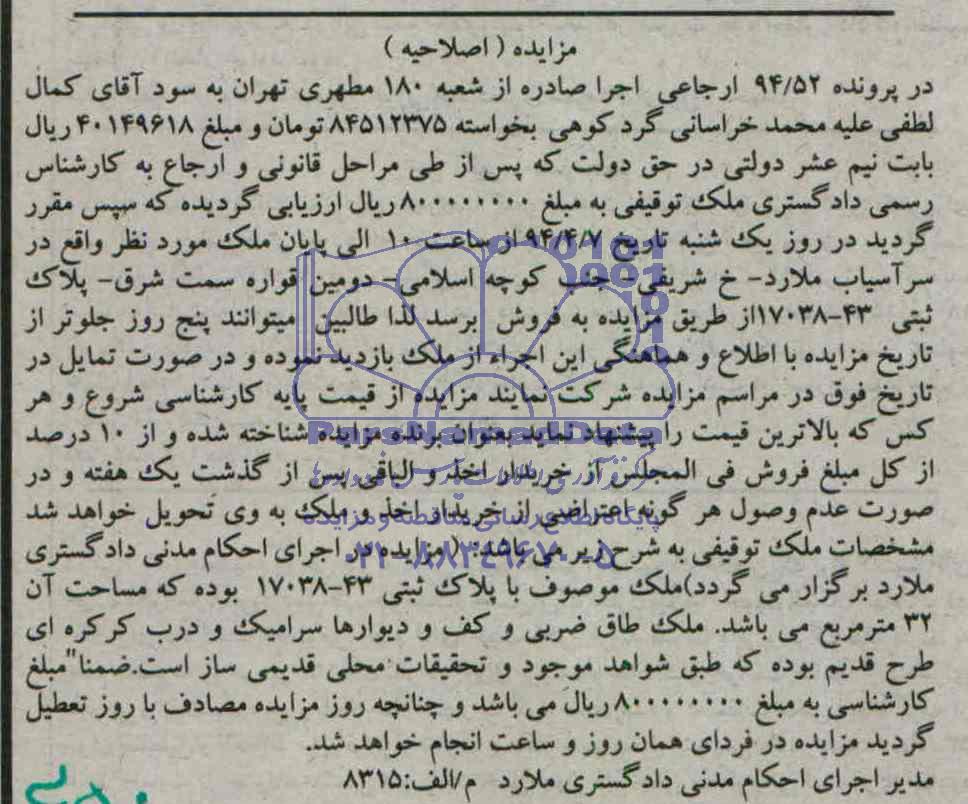 مزایده ( اصلاحیه )
در پرونده ۹۴/۵۲ ارجاعی اجرا صادره از شعبه ۱۸۰ مطهری تهران به سود آقای کمال
لطفی علیه محمد خراسانی گرد کوهی بخواسته ۸۴۵۱۲۳۷۵ تومان و مبلغ ۴۰۱۴۹۶۱۸ ریال
بابت نیم عشر دولتی در حق دولت که پس از طی مراحل قانونی و ارجاع به کارشناس
رسمی دادگستری ملک توقیفی به مبلغ ۸۰۰۰۰۰۰۰۰ ریال ارزیابی گردیده که سپس مقرر
گردید در روز یک شنبه تاریخ ۹۴/۴/۷ از ساعت ۱۰ الی پایان ملک مورد نظر واقع در
سرآسیاب ملارد- خ شریفی- جنب کوچه اسلامی- دومین قواره سمت شرق- پلاک
ثبتی ۴۳-۱۷۰۳۸از طریق مزایده به فروش برسد لذا طالبین میتوانند پنج روز جلوتر از
تاریخ مزایده با اطلاع و هماهنگی این اجراء از ملک بازدید نموده و در صورت تمایل در
تاریخ فوق در مراسم مزایده شرکت نمایند مزایده از قیمت پایه کارشناسی شروع و هر
کس که بالاترین قیمت را پیشنهاد نماید بعنوان برنده مزایده شناخته شده و از ۱۰ درصد
از کل مبلغ فروش فی المجلس از خریدار اخذ و الباقی پس از گذشت یک هفته و در
صورت عدم وصول هر گونه اعتراضی از خریدار اخذ و ملک به وی تحویل خواهد شد
مشخصات ملک توقیفی به شرح زیر می باشد: (مزایده در اجرای احکام مدنی دادگستری
ملارد برگزار می گردد)ملک موصوف با پلاک ثبتی ۴۳-۱۷۰۳۸ بوده که مساحت آن
۳۲ مترمربع می باشد. ملک طاق ضربی و کف و دیوارها سرامیک و درب کرکره ای
طرح قدیم بوده که طبق شواهد موجود و تحقیقات محلی قدیمی ساز است.ضمنا"مبلغ
کارشناسی به مبلغ ۸۰۰۰۰۰۰۰۰ ریال می باشد و چنانچه روز مزایده مصادف با روز تعطیل
گردید مزایده در فردای همان روز و ساعت انجام خواهد شد.
مدیر اجرای احکام مدنی دادگستری ملارد م/الف:۸۳۱۵
ParsNamadData
پایگاه اطلاع رسانی مناقصه و مزایده
۰۲۱-۸۸۳۴۹۶۷۰-۵